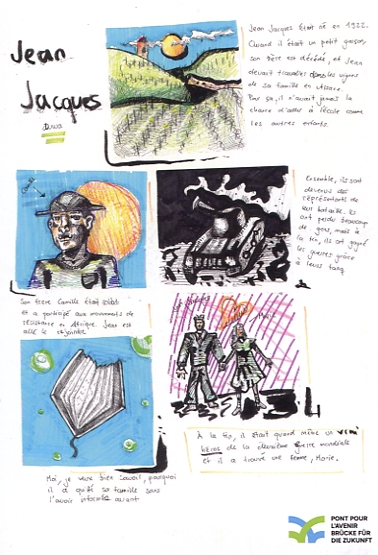 Jean
Jacques
Jean Jacques était né en 1922.
Quand il était un petit garçon,
son père est décédé, et Jean
devait travailler dans les vignes
de sa famille en Alsace.
Par ça, il n'avait jamais la
chance d'aller à l'école comme
les autres enfants.
Son frère Camille était soldat
et a participé aux mouvements de
résistance en Afrique. Jean est
allé le rejoindre
Ensemble, ils sont
devenus des
représentants de
bataille. Ils
ont perdu beaucoup
de gens, mais à
la fin, ils ont gagné
les guerres grâce
à leurs tanq
Marie
Moi, je veux bien savoir, pourquoi
il a quitté sa famille sans
l'avoir informée avant
À la fin, il était quand même un vrai
héros de la deuxième guerre mondiale
et il a trouvé une femme, Marie.
PONT POUR
L'AVENIR
BRÜCKE FÜR
DIE ZUKUNFT